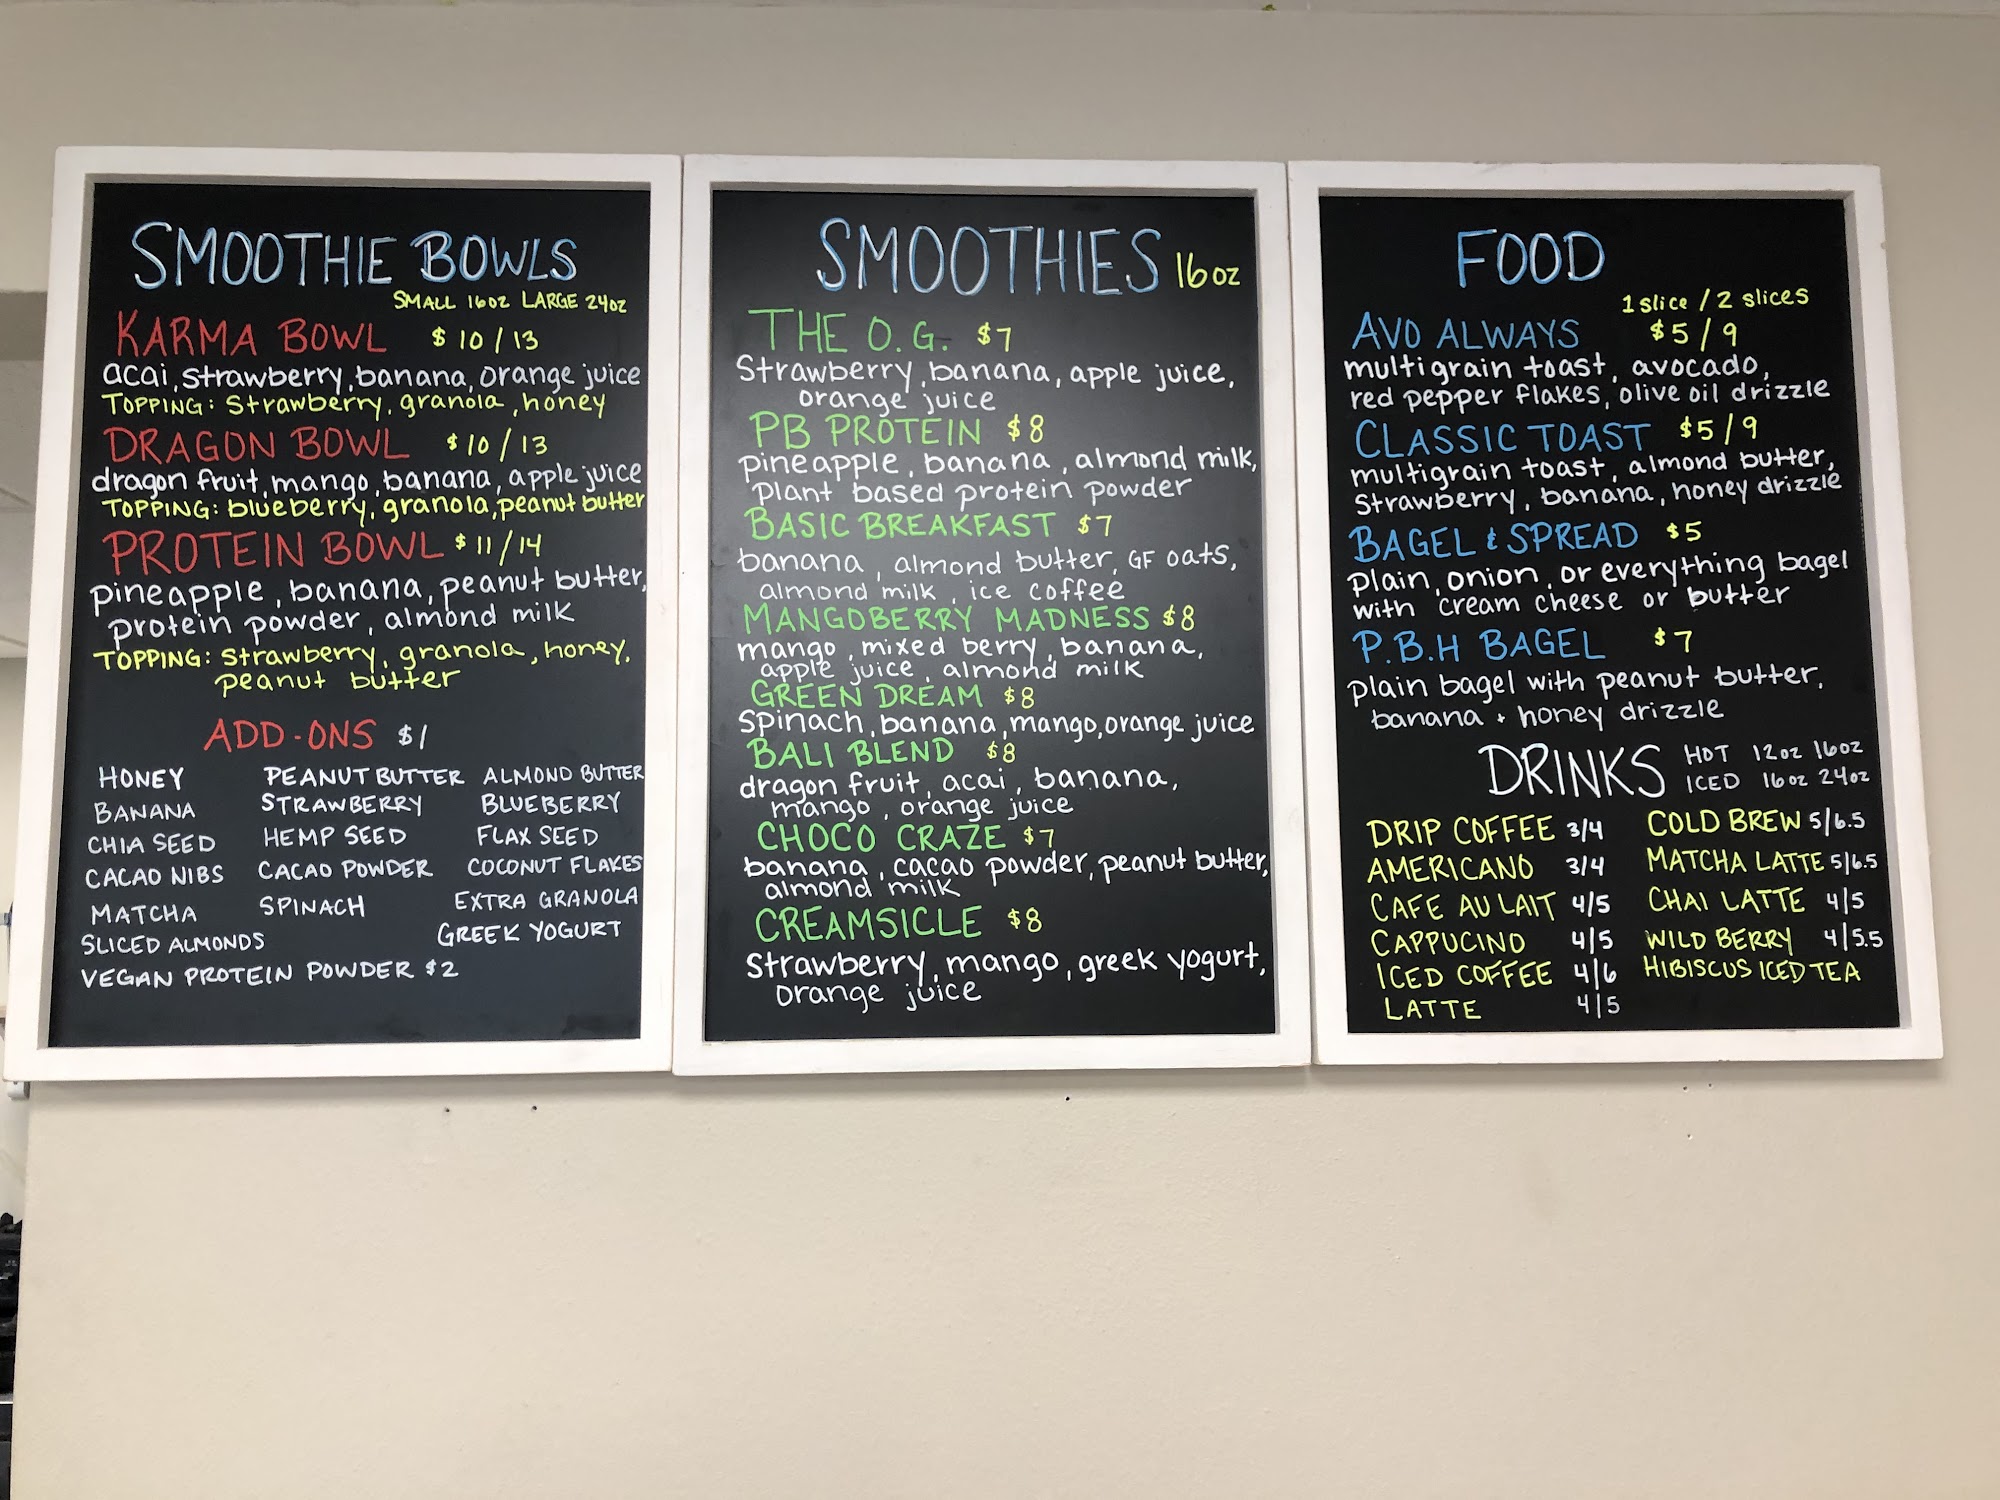 SMOOTHIE BOWLS
SMALL 16oz LARGE 24oz
KARMA BOWL $10/13
acai, strawberry, banana, orange juice
TOPPING: strawberry, granola, honey
DRAGON BOWL $10/13
dragon fruit, mango, banana, apple juice
TOPPING: blueberry, granola, peanut butter
PROTEIN BOWL $11/14
pineapple, banana, peanut butter,
protein powder, almond milk
TOPPING: strawberry, granola, honey,
peanut butter
ADD-ONS $1
HONEY PEANUT BUTTER ALMOND BUTTER
BANANA STRAWBERRY BLUEBERRY
CHIA SEED HEMP SEED FLAX SEED
CACAO NIBS CACAO POWDER COCONUT FLAKES
MATCHA SPINACH EXTRA GRANOLA
SLICED ALMONDS GREEK YOGURT
VEGAN PROTEIN POWDER $2
SMOOTHIES 16oz
THE O.G. $7
Strawberry, banana, apple juice,
orange juice
PB PROTEIN $8
pineapple, banana, almond milk,
plant based protein powder
BASIC BREAKFAST $7
banana, almond butter, GF oats,
almond milk, ice coffee
MANGOBERRY MADNESS $8
mango, mixed berry, banana,
apple juice, almond milk
GREEN DREAM $8
spinach, banana, mango, orange juice
BALI BLEND $8
dragon fruit, acai, banana,
mango, orange juice
CHOCO CRAZE $7
banana, cacao powder, peanut butter,
almond milk
CREAMSICLE $8
strawberry, mango, greek yogurt,
orange juice
FOOD
1 slice / 2 slices
AVO ALWAYS $5/9
multigrain toast, avocado,
red pepper flakes, olive oil drizzle
CLASSIC TOAST $5/9
multigrain toast, almond butter,
strawberry, banana, honey drizzle
BAGEL & SPREAD $5
plain, onion, or everything bagel
with cream cheese or butter
P.B.H BAGEL $7
plain bagel with peanut butter,
banana + honey drizzle
DRINKS HOT 12oz 16oz
ICED 16oz 24oz
DRIP COFFEE 3/4
AMERICANO 3/4
CAFE AU LAIT 4/5
CAPPUCINO 4/5
ICED COFFEE 4/6
LATTE 4/5
COLD BREW 5/6.5
MATCHA LATTE 5/6.5
CHAI LATTE 4/5
WILD BERRY 4/5.5
HIBISCUS ICED TEA